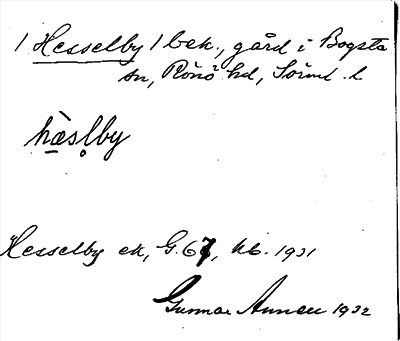 / Hesselby / bek., gård i Bogsta
sn, Rönö hd, Sörml. l
hàslby
Hesselby ek, G.67, Kb. 1931
Gunnar Annell 1932